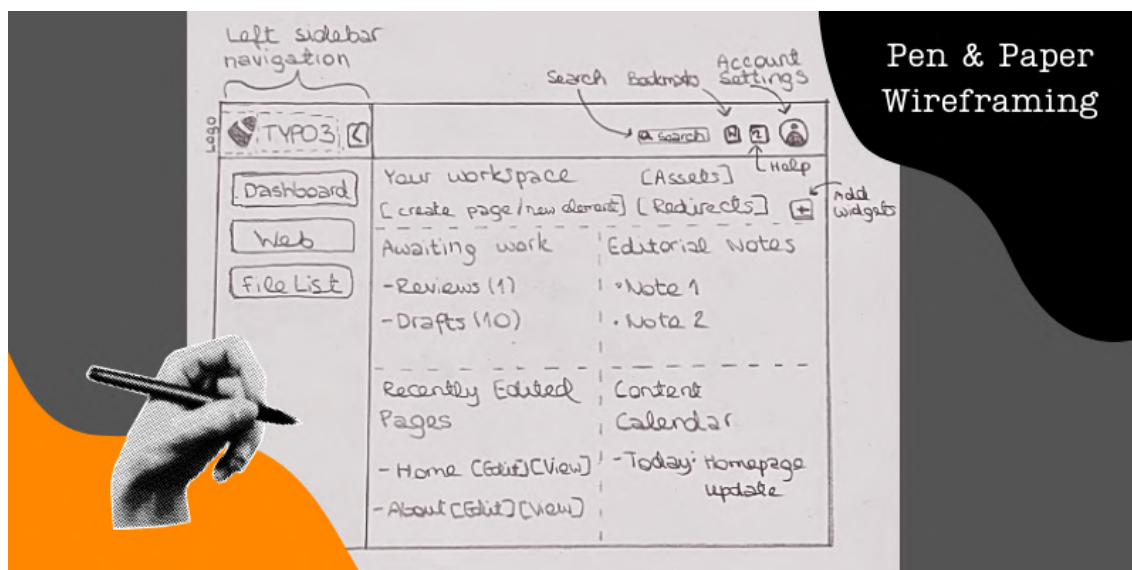 Pen & Paper
Wireframing
Left sidebar
navigation
Search
Bookmarks
Account
Settings
Logo
TYPO3
Search
Help
Dashboard
Web
File List
Your workspace [Assets]
[create page/new element] [Redirects] +
Add
widgets
Awaiting work
-Reviews (1)
-Drafts (10)
Editorial Notes
•Note 1
•Note 2
Recently Edited
Pages
-Home [Edit][View]
-About [Edit][View]
Content
Calendar
-Today: Homepage
update